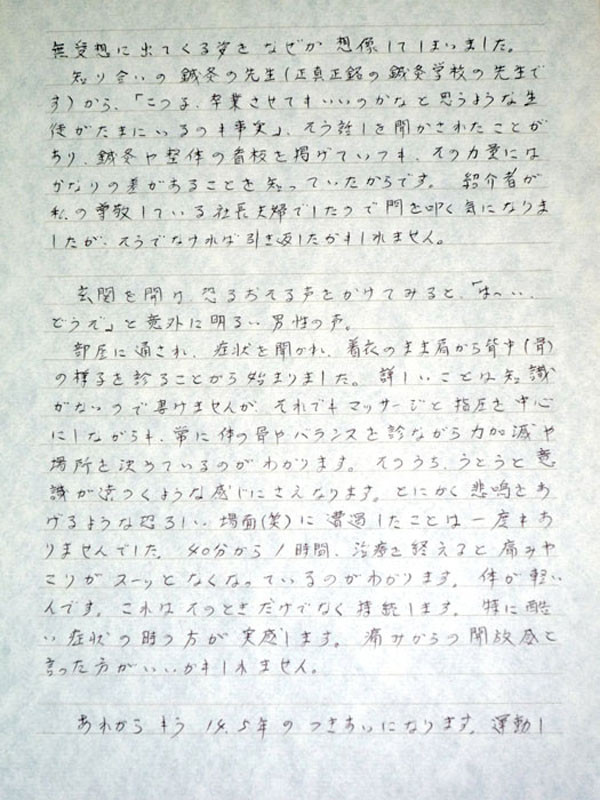 無愛想に出てくる姿をなぜか想像してしまいました。
知り合いの鍼灸の先生(正真正銘の鍼灸学校の先生で
す)から、「こつよ、卒業させてもいいのかなと思うような生
徒がたまにいるのも事実」、そう話しを聞かされたことが
あり、鍼灸や整体の看板を掲げていても、その力量には
かなりの差があることを知っていたからです。紹介者が
私の尊敬している社長夫婦でしたので門を叩く気になりま
したが、そうでなければ引き返したかもしれません。
玄関を開け、恐るおそる声をかけてみると、「は〜い、
どうぞ」と意外に明るい男性の声。
部屋に通され、症状を聞かれ、着衣のまま肩から背中(骨)
の様子を診ることから始まりました。詳しいことは知識
がないので書けませんが、それでもマッサージと指圧を中心
にしながらも、常に体の骨やバランスを診ながら力加減や
場所を決めているのがわかります。そのうち、うとうと意
識が遠つくような感じにさえなります。とにかく悲鳴をあ
げるような恐ろしい場面(笑)に遭遇したことは一度もあ
りませんでした。40分から1時間、治療を終えると痛みや
こりがスーッとなくなっているのがわかります。体が軽い
んです。これはそのときだけでなく持続します。特に酷
い症状の時の方が実感します。痛みからの開放感と
言った方がいいかもしれません。
あれからもう14.5年のつきあいになります。運動し